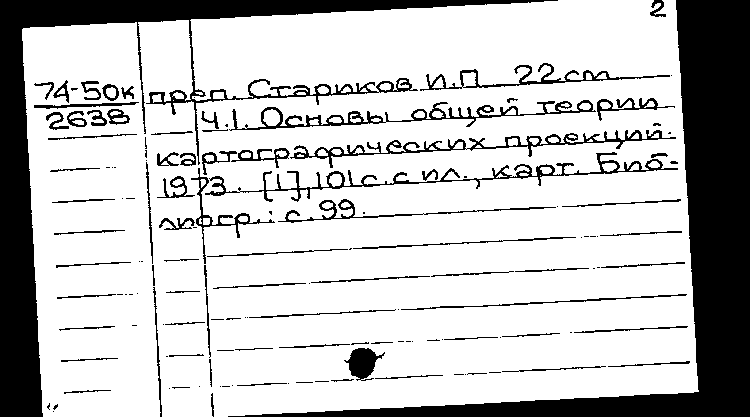 2
74-50к преп. Стариков И.П 22см
2638 Ч.1. Основы общей теории
картографических проекций.
1973. [1], 101 с. с ил., карт. Биб-
лиогр.: с. 99.